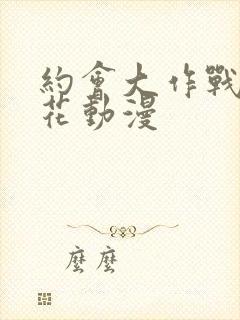 約會大作戰
花動漫
麼麼